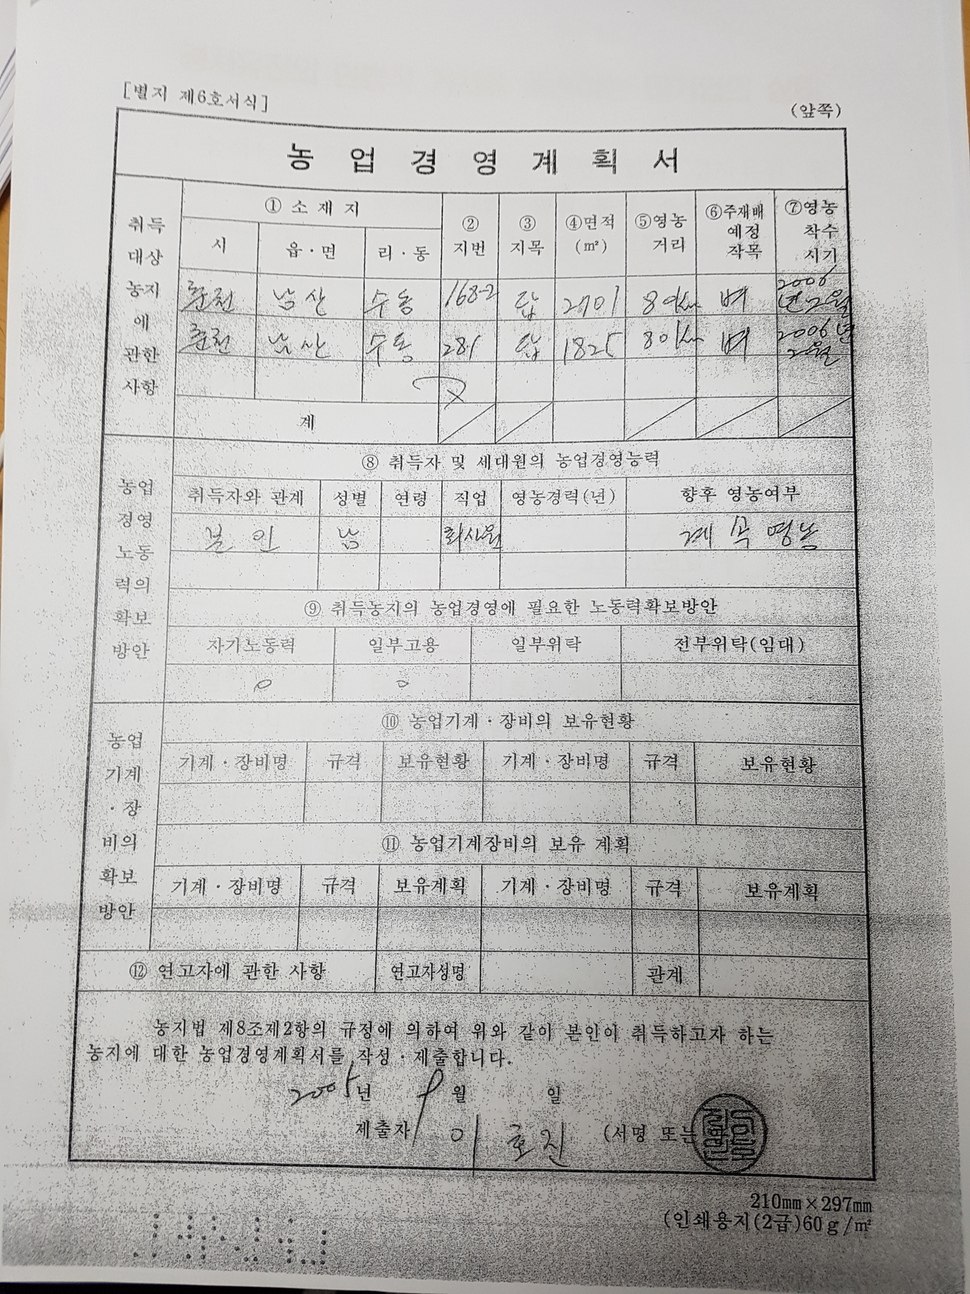 [별지 제6호서식]
(앞쪽)
농 업 경 영 계 획 서
취득 대상 농지 에 관한 사항
① 소 재 지
② 지번
③ 지목
④면적 (㎡)
⑤영농 거리
⑥주재배 예정 작목
⑦영농 착수 시기
시 읍·면 리·동
춘천 남산 수동 168-2 답 2701 80km 벼 2006년 2월
춘천 남산 수동 281 답 1825 80km 벼 2006년 2월
계
농업 경영 노동 력의 확보 방안
⑧ 취득자 및 세대원의 농업경영능력
취득자와 관계 성별 연령 직업 영농경력(년) 향후 영농여부
본인 남 회사원 계속영농
⑨ 취득농지의 농업경영에 필요한 노동력확보방안
자기노동력 일부고용 일부위탁 전부위탁(임대)
○ ○
농업 기계 ·장 비의 확보 방안
⑩ 농업기계·장비의 보유현황
기계·장비명 규격 보유현황 기계·장비명 규격 보유현황
⑪ 농업기계장비의 보유 계획
기계·장비명 규격 보유계획 기계·장비명 규격 보유계획
⑫ 연고자에 관한 사항 연고자성명 관계
농지법 제8조제2항의 규정에 의하여 위와 같이 본인이 취득하고자 하는
농지에 대한 농업경영계획서를 작성·제출합니다.
2005년 9월 일
제출자 이호진 (서명 또는
210㎜×297㎜
(인쇄용지(2급)60g/㎡